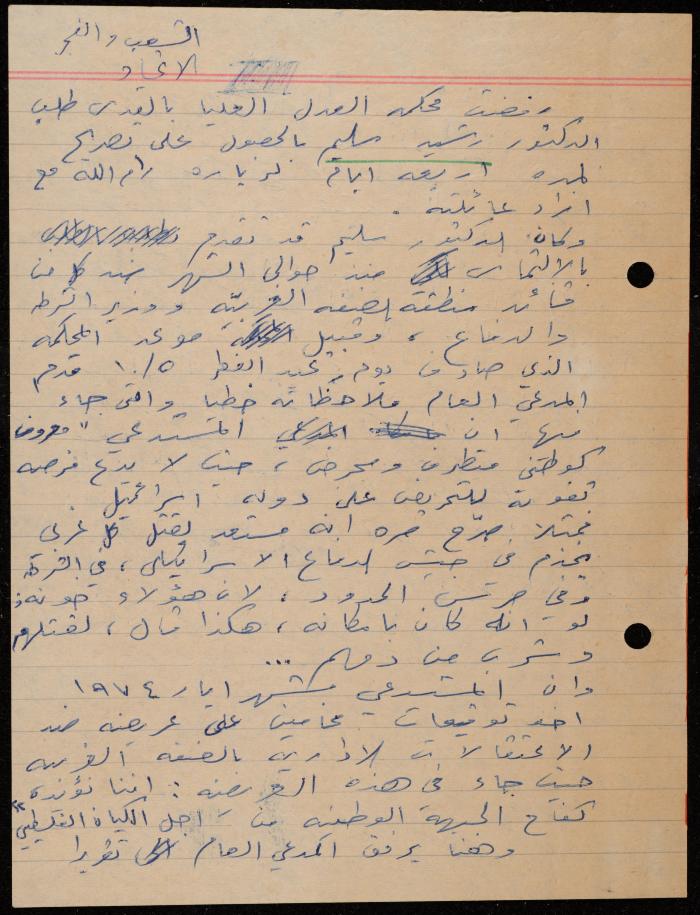 الشعب والفجر
الاتحاد
رفضت محكمة العدل العليا بالقدس طلب
الدكتور رشيد سليم بالحصول على تصريح
لمدة اربعة ايام لزيارة رام الله مع
افراد عائلته .
وكان الدكتور سليم قد تقدم
بالالتماس منذ حوالي الشهر ضد كل من
قائد منطقة الضفة الغربية ووزير الشرطة
والدفاع ، وقبيل موعد المحكمة
الذي صادف يوم عيد الفطر ١٠/٥ قدم
المدعي العام ملاحظاته خطيا والتي جاء
منها ان المستدعي " معروف
كوطني متطرف ومحرض ، حيث لا يدع فرصة
تفوته للتحريض على دولة اسرائيل .
فمثلا صرّح مرة انه مستعد لقتل كل عربي
يخدم في جيش الدفاع الاسرائيلي ، في الشرطة
وفي حرس الحدود ، لان هؤلاء خونة ؛
لو انه كان بامكانه ، هكذا قال ، لقتلهم
وشرب من دمهم ...
وان المستدعي في شهر ايار ١٩٧٤
اخذ توقيعات محامين على عريضة ضد
الاعتقالات الادارية بالضفة الغربية
حيث جاء في هذه العريضة : اننا نؤيد
كفاح الجبهة الوطنية من اجل الكيان الفلسطيني "
وهنا يرفق المدعي العام تقريرا